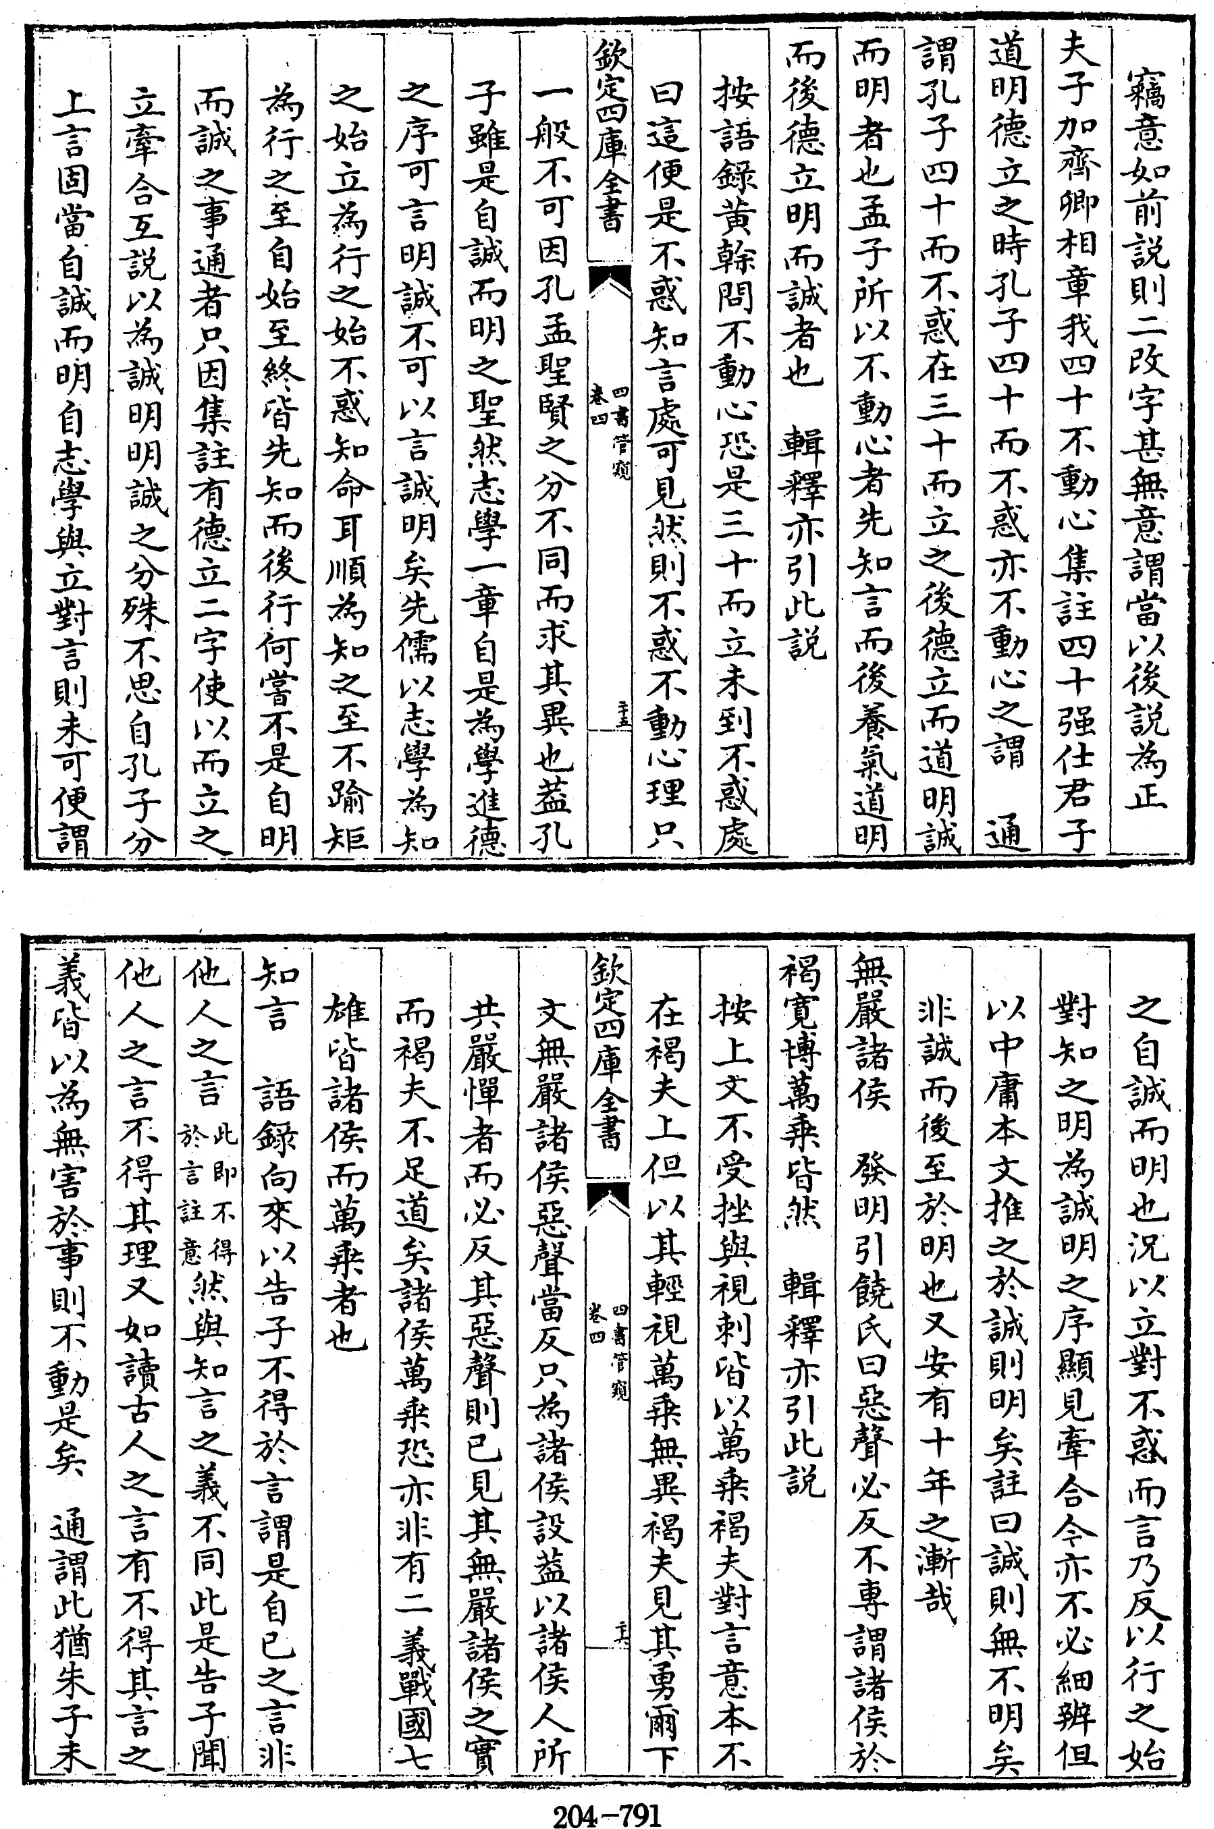 竊意如前説則二改字甚無意謂當以後説為正
夫子加齊卿相章我四十不動心集註四十强仕君子
道明德立之時孔子四十而不惑亦不動心之謂　通
謂孔子四十而不惑在三十而立之後德立而道明誠
而明者也孟子所以不動心者先知言而後養氣道明
而後德立明而誠者也　輯釋亦引此説
按語錄黃榦問不動心恐是三十而立未到不惑處
曰這便是不惑知言處可見然則不惑不動心理只
欽定四庫全書
四書管窺
卷四
二十五
一般不可因孔孟聖賢之分不同而求其異也葢孔
子雖是自誠而明之聖然志學一章自是為學進德
之序可言明誠不可以言誠明矣先儒以志學為知
之始立為行之始不惑知命耳順為知之至不踰矩
為行之至自始至終皆先知而後行何嘗不是自明
而誠之事通者只因集註有德立二字使以而立之
立牽合互説以為誠明明誠之分殊不思自孔子分
上言固當自誠而明自志學與立對言則未可便謂
之自誠而明也況以立對不惑而言乃反以行之始
對知之明為誠明之序顯見牽合今亦不必細辨但
以中庸本文推之於誠則明矣註曰誠則無不明矣
非誠而後至於明也又安有十年之漸哉
無嚴諸侯　發明引饒氏曰惡聲必反不專謂諸侯於
褐寬博萬乘皆然　輯釋亦引此説
按上文不受挫與視刺皆以萬乘褐夫對言意本不
在褐夫上但以其輕視萬乘無異褐夫見其勇爾下
欽定四庫全書
四書管窺
卷四
二十六
文無嚴諸侯惡聲當反只為諸侯設葢以諸侯人所
共嚴憚者而必反其惡聲則已見其無嚴諸侯之實
而褐夫不足道矣諸侯萬乘恐亦非有二義戰國七
雄皆諸侯而萬乘者也
知言　語錄向來以告子不得於言謂是自己之言非
他人之言此即不得於言註意然與知言之義不同此是告子聞
他人之言不得其理又如讀古人之言有不得其言之
義皆以為無害於事則不動是矣　通謂此猶朱子未
204-791